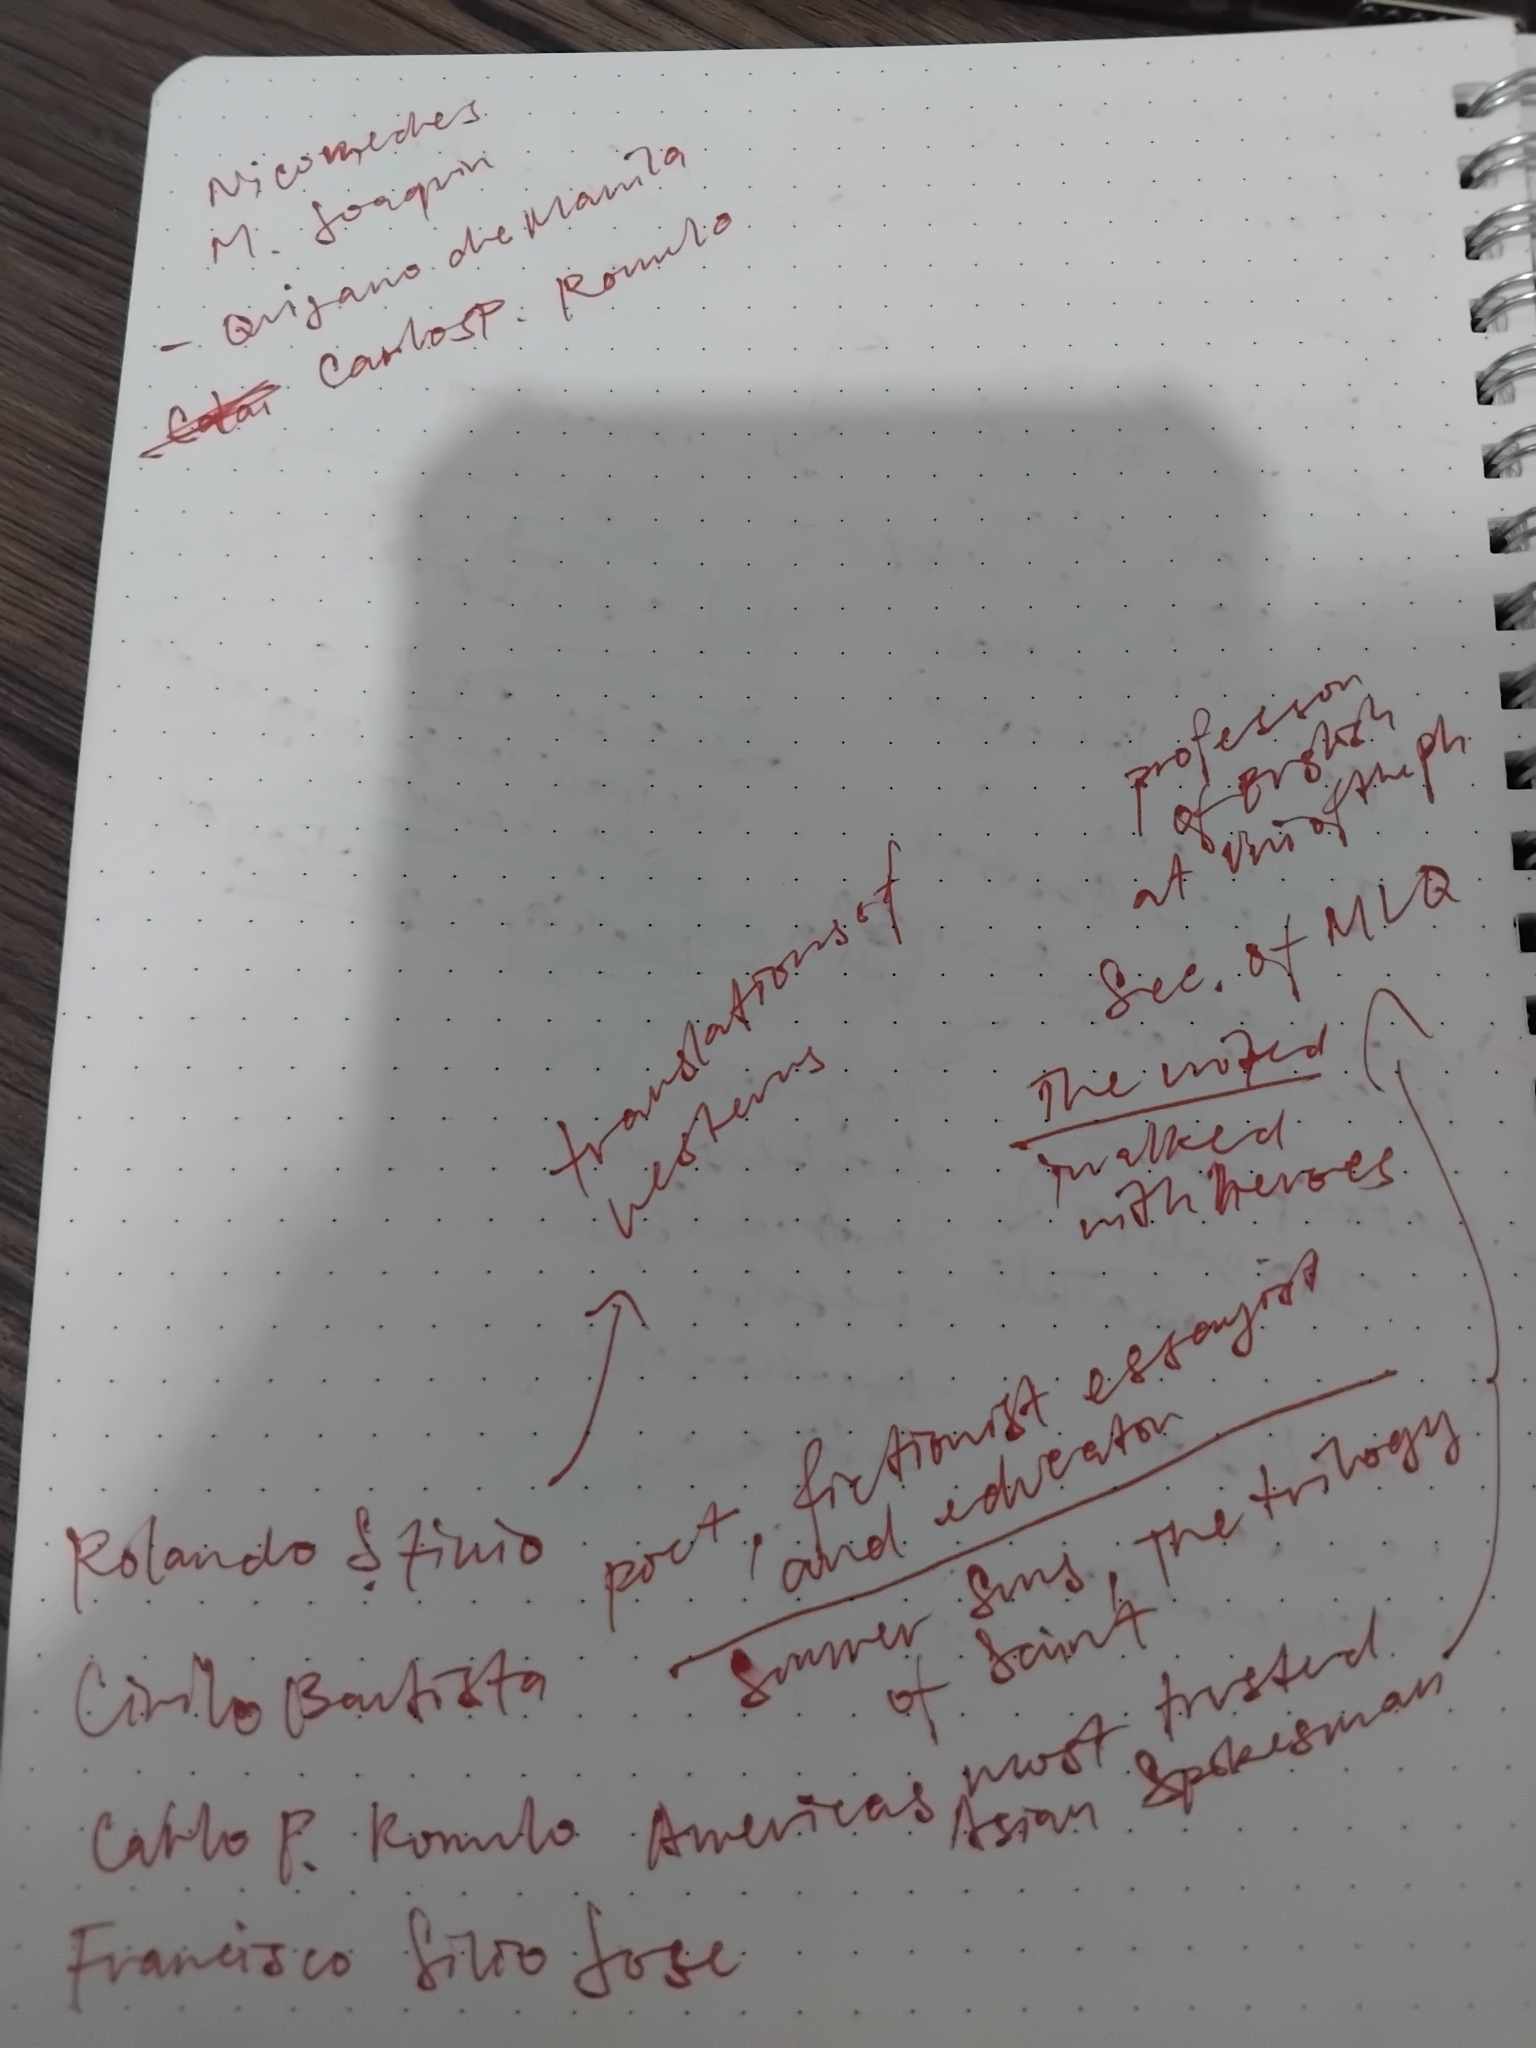 Nicomedes
M. Joaquin
- Quijano de Manila
Carlos P. Romulo
professor
of English
at Uni of the ph
Sec. of MLQ
The united
I walked
with heroes
translations of
westerns
Rolando S Tinio
poet, fictionist essayist
and educator
Cirilo Bautista
Summer Suns, The trilogy
of Saint
Carlo P. Romulo Americas most trusted
Asian Spokesman
Francisco Silio Jose